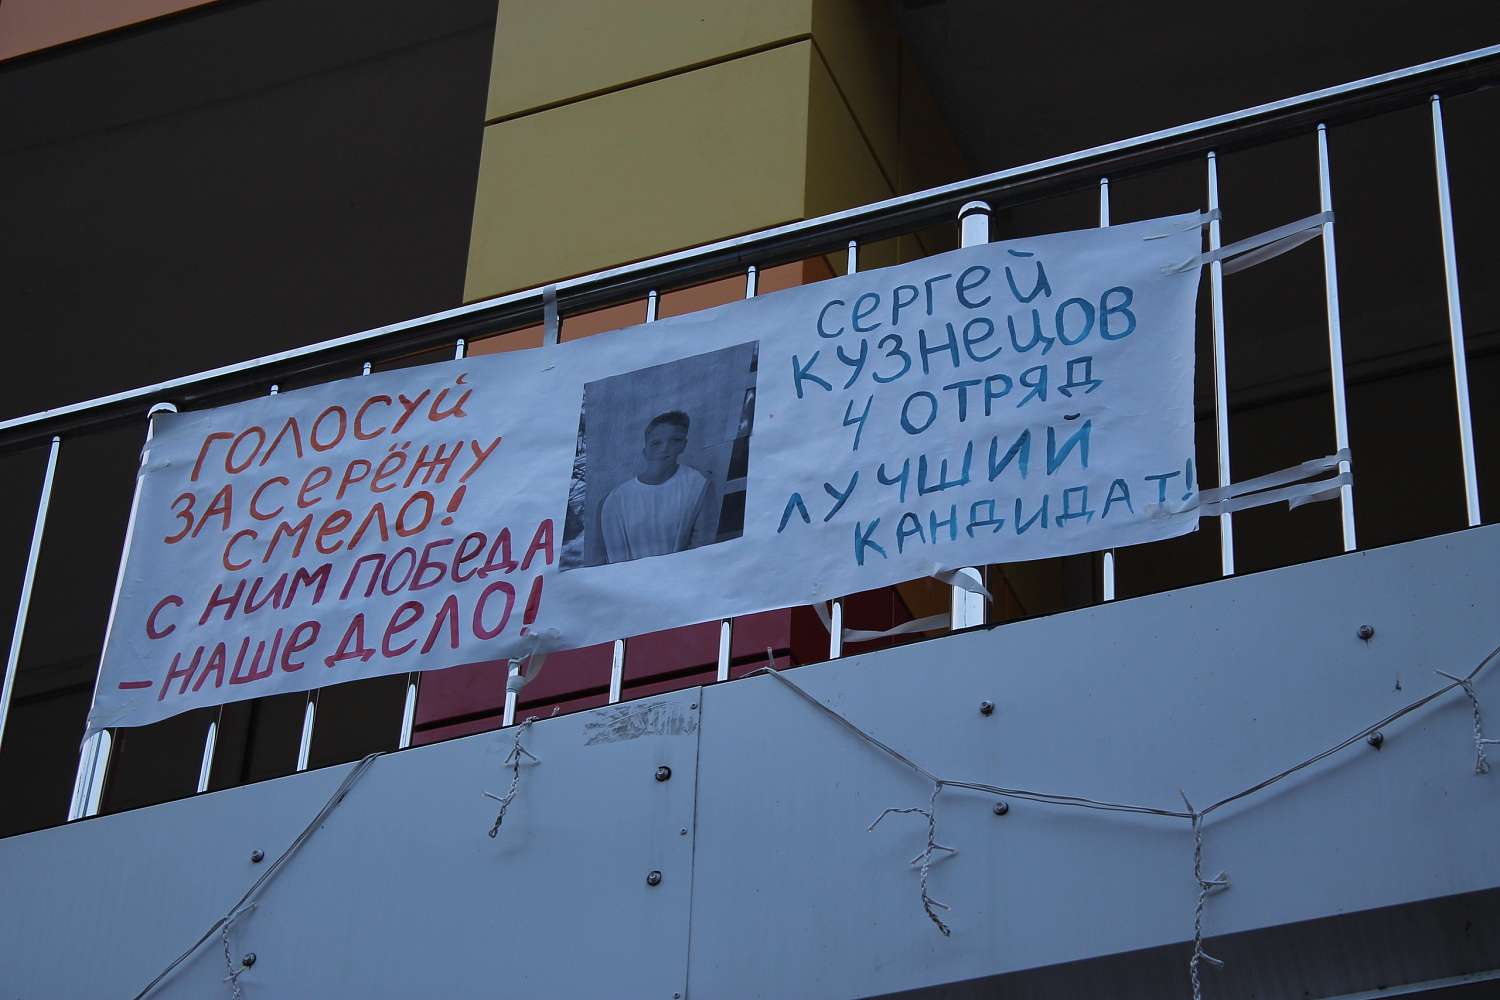 ГОЛОСУЙ
ЗА СЕРЁЖУ
СМЕЛО!
С НИМ ПОБЕДА
– НАШЕ ДЕЛО!
СЕРГЕЙ
КУЗНЕЦОВ
4 ОТРЯД
ЛУЧШИЙ
КАНДИДАТ!